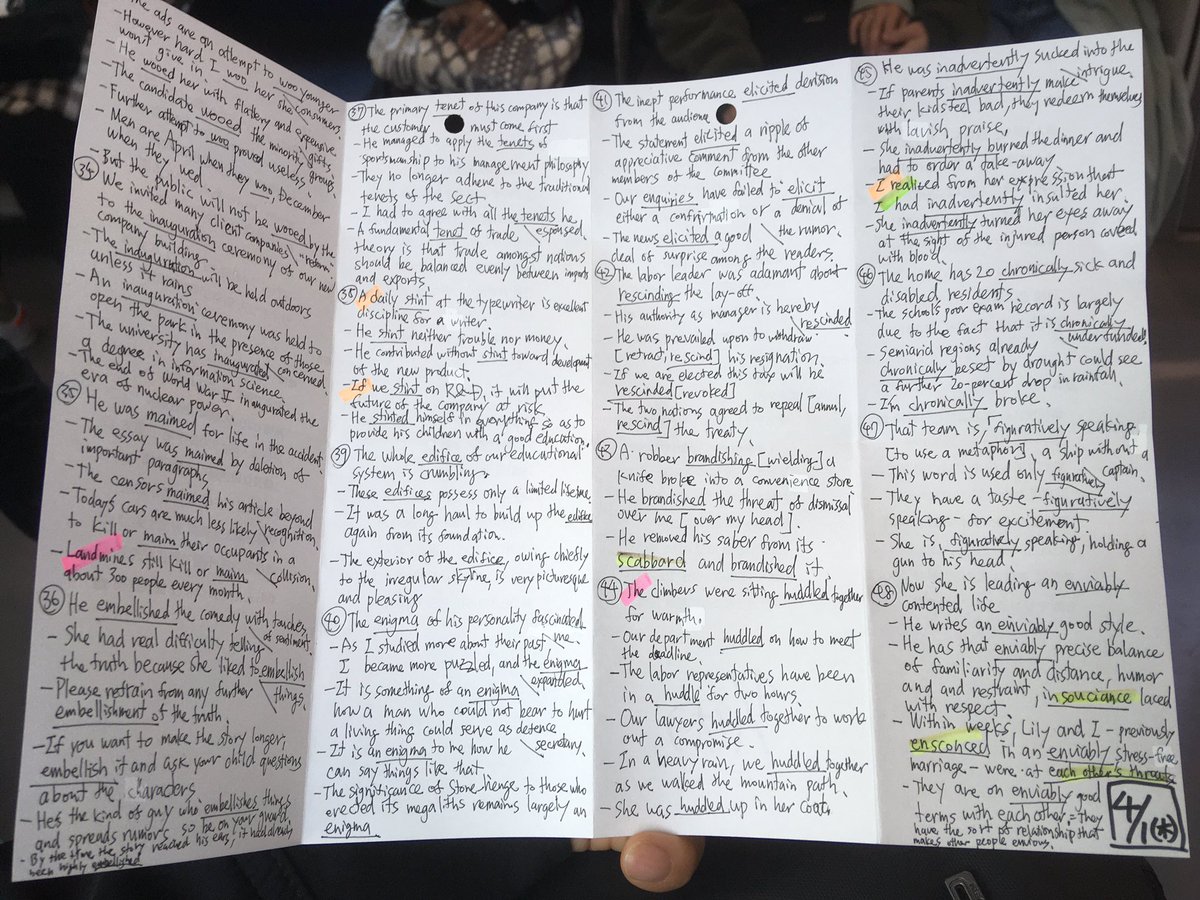 The ads are an attempt to woo younger
- However hard I woo her she consumers.
won't give in.
- He wooed her with flattery and expensive
- The candidate wooed the minority gifts
Further attempt to woo proved useless groups
- Men are April when they woo, December
when they wed.
- But the public will not be wooed by the
34 We invited many client companies "reform"
to the inauguration ceremony of our new
company building.
- The inauguration will be held outdoors
unless it rains
- An inauguration ceremony was held to
open the park in the presence of those
- The university has inaugurated concerned.
a degree in information science.
- The end of World War II inaugurated the
era of nuclear power.
35 He was maimed for life in the accident
- The essay was maimed by deletion of
important paragraphs
- The censors maimed his article beyond
- Today's cars are much less likely recognition.
to kill or maim their occupants in a
- Landmines still kill or maim collision,
about 300 people every month.
36 He embellished the comedy with touches
- She had real difficulty telling of sentiment.
the truth because she liked to embellish
- Please refrain from any further things.
embellishment of the truth.
- If you want to make the story longer,
embellish it and ask your child questions
about the characters
- He's the kind of guy who embellishes things
and spreads rumors, so be on your guard.
- By the time the story reached his ears, it had already
been highly embellished
37 The primary tenet of this company is that
the customer must come first
- He managed to apply the tenets of
sportsmanship to his management philosophy
- They no longer adhere to the traditional
tenets of the sect.
- I had to agree with all the tenets he
- A fundamental tenet of trade espoused.
theory is that trade amongst nations
should be balanced evenly between imports
and exports.
38 A daily stint at the typewriter is excellent
discipline for a writer.
- He stint neither trouble nor money.
- He contributed without stint toward development
of the new product.
- If we stint on R&D, it will put the
future of the company at risk.
- He stinted himself in everything so as to
provide his children with a good education.
39 The whole edifice of our educational
system is crumbling
- These edifices possess only a limited lifetime.
- It was a long haul to build up the edifice
again from its foundation.
- The exterior of the edifice, owing chiefly
to the irregular skyline is very picturesque
and pleasing
40 The enigma of his personality fascinated
- As I studied more about their past me.
I became more puzzled, and the enigma
- It is something of an enigma expanded.
how a man who could not bear to hurt
a living thing could serve as defence
- It is an enigma to me how he secretary.
can say things like that
- The significance of Stonehenge to those who
erected its megaliths remains largely an
enigma
41 The inept performance elicited derision
from the audience
- The statement elicited a ripple of
appreciative comment from the other
members of the committee
- Our enquiries have failed to elicit
either a confirmation or a denial of
- The news elicited a good the rumor.
deal of surprise among the readers.
42 The labor leader was adamant about
rescinding the lay-off.
- His authority as manager is hereby
- He was prevailed upon to withdraw rescinded
[retract, rescind] his resignation.
- If we are elected this tax will be
rescinded [revoked]
- The two nations agreed to repeal [annul,
rescind] the treaty.
43 A robber brandishing [wielding] a
knife broke into a convenience store
- He brandished the threat of dismissal
over me [over my head].
- He removed his saber from its
scabbard and brandished it.
44 The climbers were sitting huddled together
for warmth.
- Our department huddled on how to meet
the deadline.
- The labor representatives have been
in a huddle for two hours.
- Our lawyers huddled together to work
out a compromise.
- In a heavy rain, we huddled together
as we walked the mountain path.
- She was huddled up in her coat.
45 He was inadvertently sucked into the
- If parents inadvertently make intrigue.
their kids feel bad, they redeem themselves
with lavish praise,
- She inadvertently burned the dinner and
had to order a take-away
- I realized from her expression that
I had inadvertently insulted her.
- She inadvertently turned her eyes away
at the sight of the injured person covered
with blood.
46 The home has 20 chronically sick and
disabled residents
- The schools poor exam record is largely
due to the fact that it is chronically
- Semiarid regions already underfunded.
chronically beset by drought could see
a further 20-percent drop in rainfall.
- I'm chronically broke.
47 That team is, figuratively speaking
[to use a metaphor], a ship without a
- This word is used only figuratively captain.
- They have a taste - figuratively
speaking - for excitement.
- She is, figuratively speaking, holding a
gun to his head.
48 Now she is leading an enviably
contented life
- He writes an enviably good style.
- He has that enviably precise balance
of familiarity and distance, humor
and and restraint, insouciance laced
with respect.
- Within weeks, Lily and I - previously
ensconced in an enviably stress-free
marriage - were at each other's throats
- They are on enviably good
terms with each other, = they
have the sort of relationship that
makes other people envious.
4/1(*)